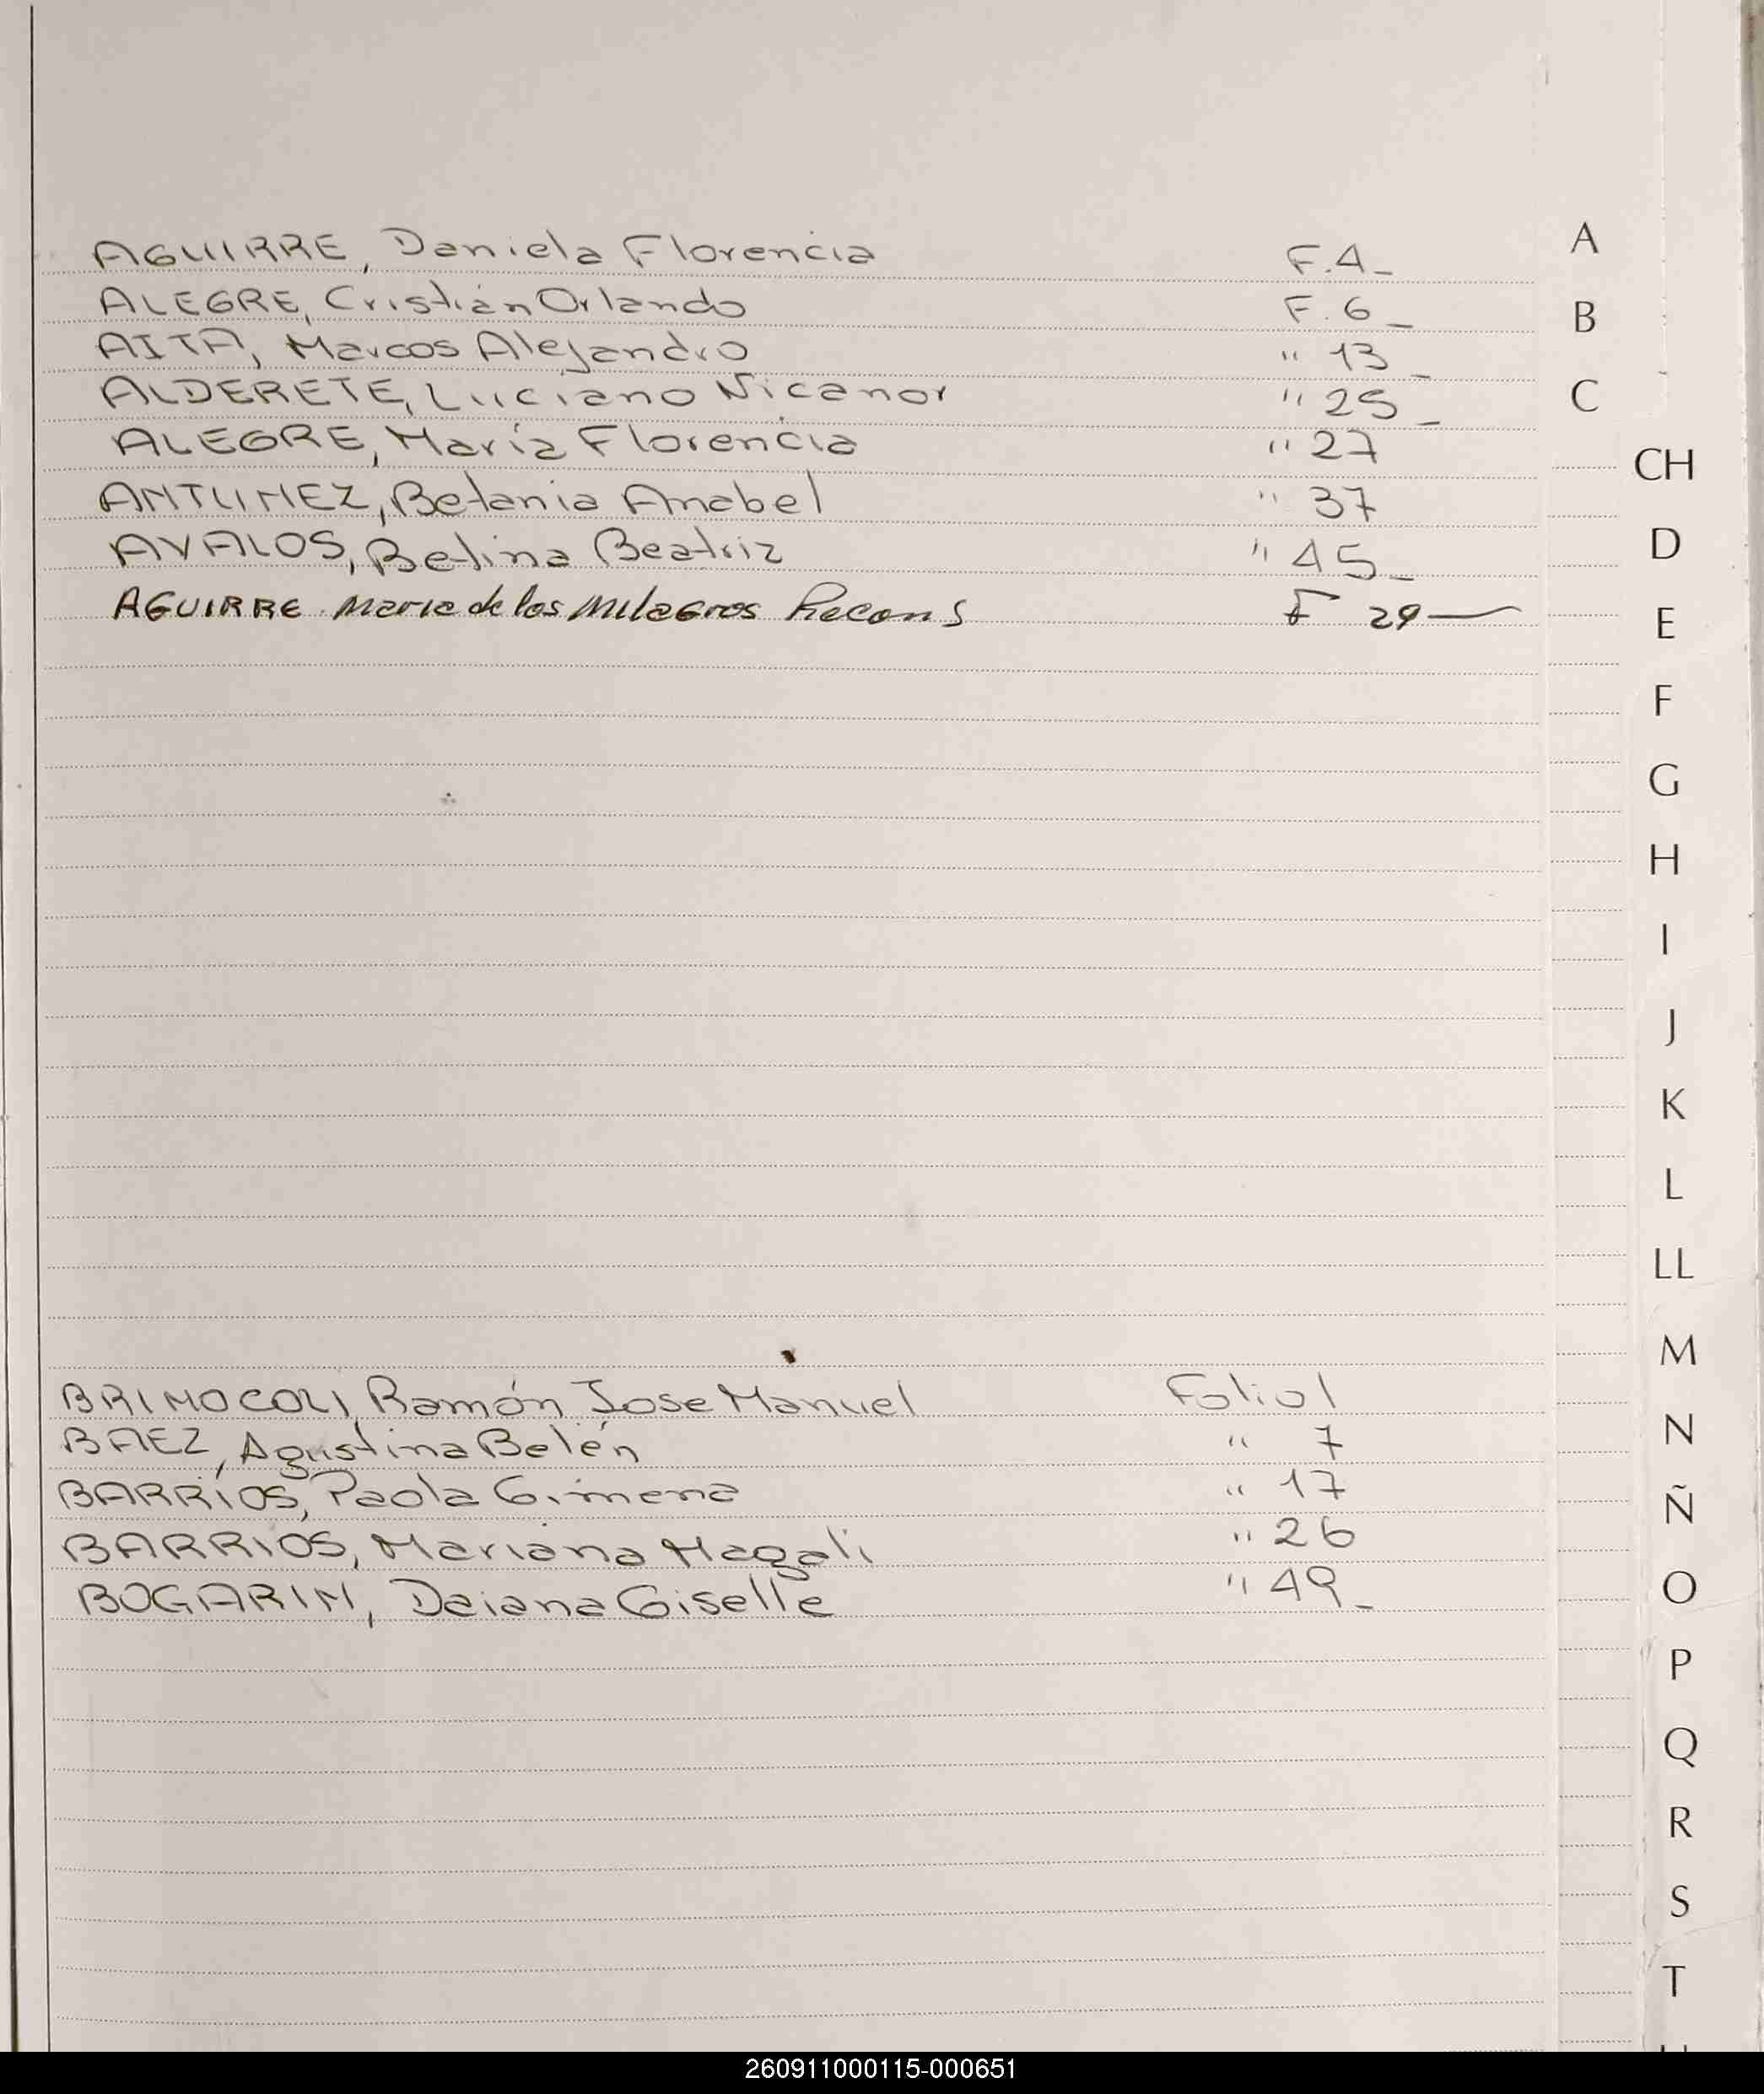 AGUIRRE, Daniela Florencia F.4_
ALEGRE, Cristián Orlando F.6_
AITA, Marcos Alejandro " 13_
ALDERETE, Luciano Nicanor " 25_
ALEGRE, María Florencia " 27
ANTUNEZ, Betania Anabel " 37
AVALOS, Belina Beatriz " 45_
AGUIRRE Maria de los Milagros Recons F 29—
BRINOCOLI, Ramón Jose Manuel Folio 1
BAEZ, Agustina Belén " 7
BARRIOS, Paola Gimena " 17
BARRIOS, Mariana Magali " 26
BOGARIN, Daiana Giselle " 49_
A
B
C
CH
D
E
F
G
H
I
J
K
L
LL
M
N
Ñ
O
P
Q
R
S
T
260911000115-000651